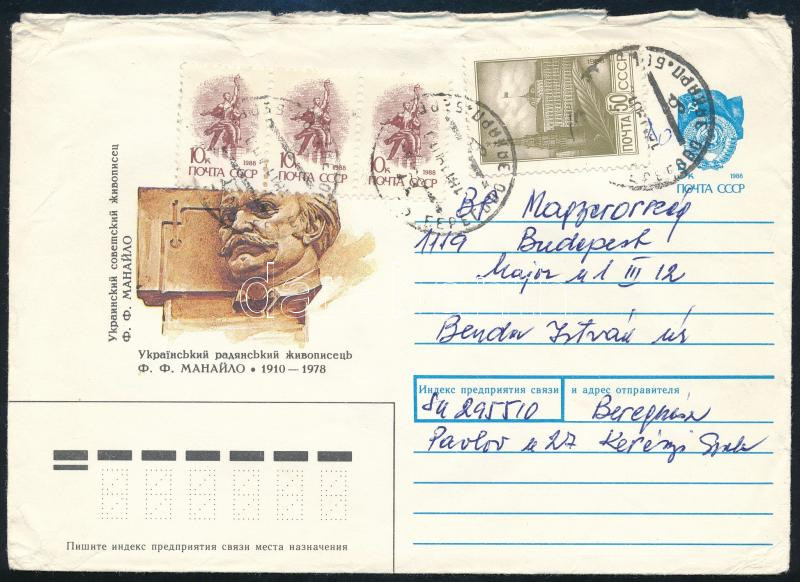 10к 1988 ПОЧТА СССР
10к 1988 ПОЧТА СССР
10к 1988 ПОЧТА СССР
ПОЧТА 50 СССР
1988
ПОЧТА СССР
БЕРЕГОВО
Украинский советский живописец
Ф. Ф. МАНАЙЛО
Український радянський живописець
Ф. Ф. МАНАЙЛО • 1910—1978
1119 Budapest
Major u 1 III 12
Benda István úr
Индекс предприятия связи и адрес отправителя
Su 295510
Pavlov u 27
Пишите индекс предприятия связи места назначения